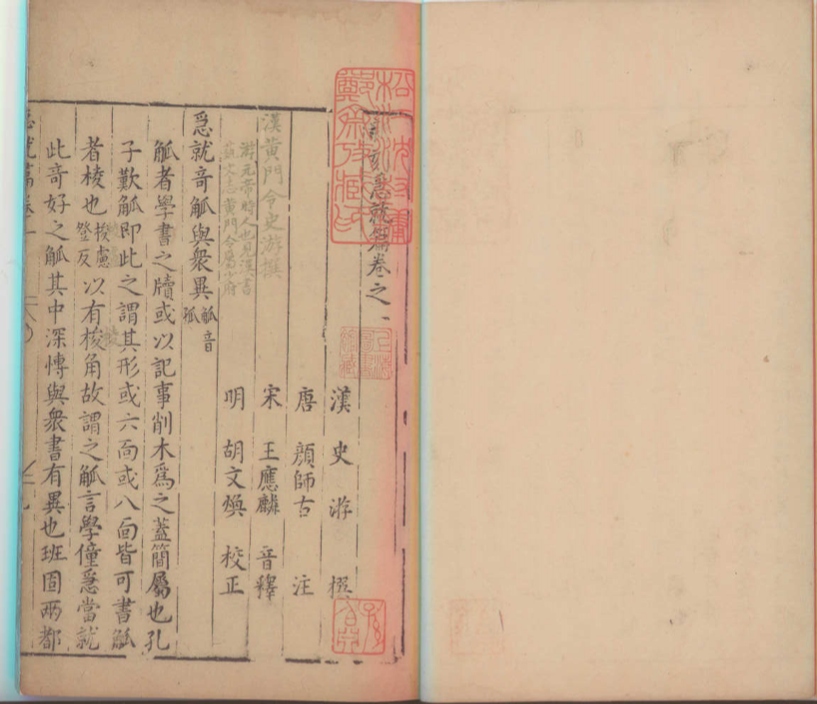 新刻急就篇卷之一
漢 史 游 撰
唐 顏師古 注
宋 王應麟 音釋
明 胡文煥 校正
漢黃門令史游撰
游元帝時人也見漢書
藝文志黃門令屬少府
急就奇觚與衆異 觚音孤
觚者學書之牘或以記事削木爲之蓋簡屬也孔
子歎觚即此之謂其形或六面或八面皆可書觚
者棱也棱慮登反以有棱角故謂之觚言學僮急當就
此奇好之觚其中深博與衆書有異也班固兩都